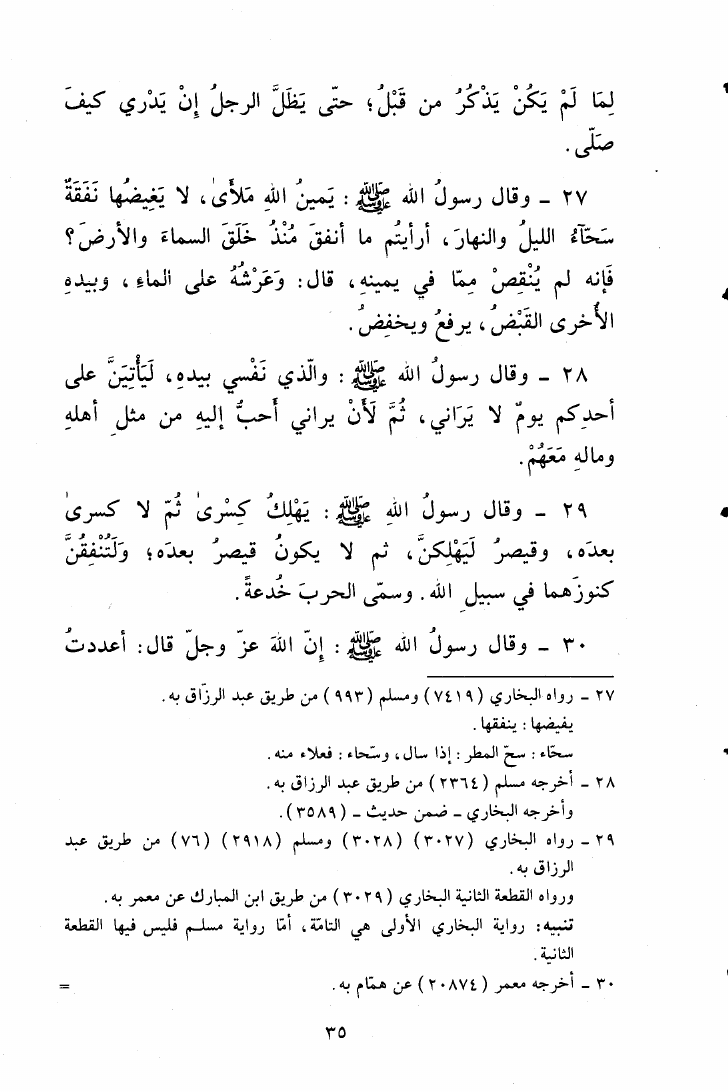 لِمَا لَمْ يَكُنْ يَذْكُرُ من قَبْلُ؛ حتّى يَظَلَّ الرجلُ إِنْ يَدْري كيفَ
صَلّى.
٢٧ ـ وقال رسولُ الله ﷺ: يَمينُ اللهِ مَلأىٰ، لا يَغِيضُها نَفَقَةٌ
سَحّآءُ الليلُ والنهارَ، أرأيتُم ما أنفقَ مُنْذُ خَلَقَ السماءَ والأرضَ؟
فَإنه لم يُنْقِصْ مِمّا في يمينهِ، قال: وَعَرْشُهُ على الماءِ، وبيدهِ
الأُخرى القَبْضُ، يرفعُ ويخفِضُ.
٢٨ ـ وقال رسولُ الله ﷺ: والّذي نَفْسي بيدهِ، لَيَأْتِيَنَّ على
أحدِكم يومٌ لا يَرَاني، ثُمَّ لَأَنْ يراني أَحبُّ إليهِ من مثلِ أهلهِ
ومالهِ مَعَهُمْ.
٢٩ ـ وقال رسولُ اللهِ ﷺ: يَهْلِكُ كِسْرىٰ ثُمّ لا كسرىٰ
بعدَه، وقيصرُ لَيَهْلِكنَّ، ثم لا يكونُ قيصرُ بعدَه؛ وَلَتُنْفِقُنَّ
كنوزَهما في سبيلِ الله. وسمّى الحربَ خُدعةً.
٣٠ ـ وقال رسولُ الله ﷺ: إنّ اللهَ عزّ وجلّ قال: أعددتُ
٢٧ ـ رواه البخاري (٧٤١٩) ومسلم (٩٩٣) من طريق عبد الرزّاق به.
يفيضها: ينفقها.
سحّاء: سحّ المطر: إذا سال، وسّحاء: فعلاء منه.
٢٨ ـ أخرجه مسلم (٢٣٦٤) من طريق عبد الرزاق به.
وأخرجه البخاري ـ ضمن حديث ـ (٣٥٨٩).
٢٩ ـ رواه البخاري (٣٠٢٧) (٣٠٢٨) ومسلم (٢٩١٨) (٧٦) من طريق عبد
الرزاق به.
ورواه القطعة الثانية البخاري (٣٠٢٩) من طريق ابن المبارك عن معمر به.
تنبيه: رواية البخاري الأولى هي التامّة، أمّا رواية مسلم فليس فيها القطعة
الثانية.
٣٠ ـ أخرجه معمر (٢٠٨٧٤) عن همّام به. =
٣٥